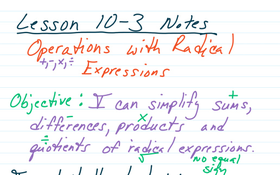 Lesson 10-3 Notes
Operations with Radical
+,-,×,÷
Expressions
Objective: I can simplify sums,
+
differences, products and
- ×
quotients of radical expressions.
÷
no equal
sign